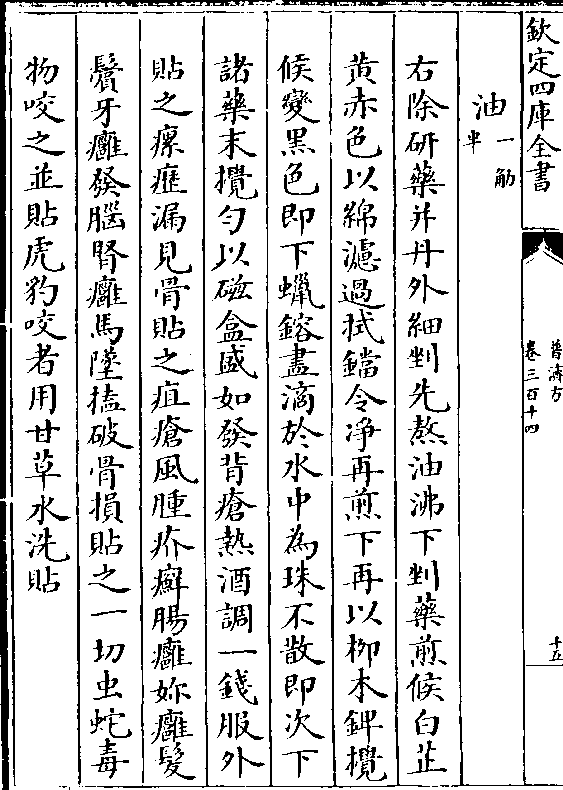 欽定四庫全書
普濟方
卷三百十四
十五
油一觔半
右除研藥并丹外細剉先熬油沸下剉藥煎候白芷
黄赤色以綿濾過拭鐺令净再煎下再以柳木錍攪
候變黑色即下蠟鎔盡滴於水中為珠不散即次下
諸藥末攪勻以磁盒盛如發背瘡熱酒調一錢服外
貼之瘰癧漏見骨貼之疽瘡風腫疥癬腸癰妳癰髪
鬢牙癰發腦腎癰馬墜搕破骨損貼之一切虫蛇毒
物咬之並貼虎豹咬者用甘草水洗貼